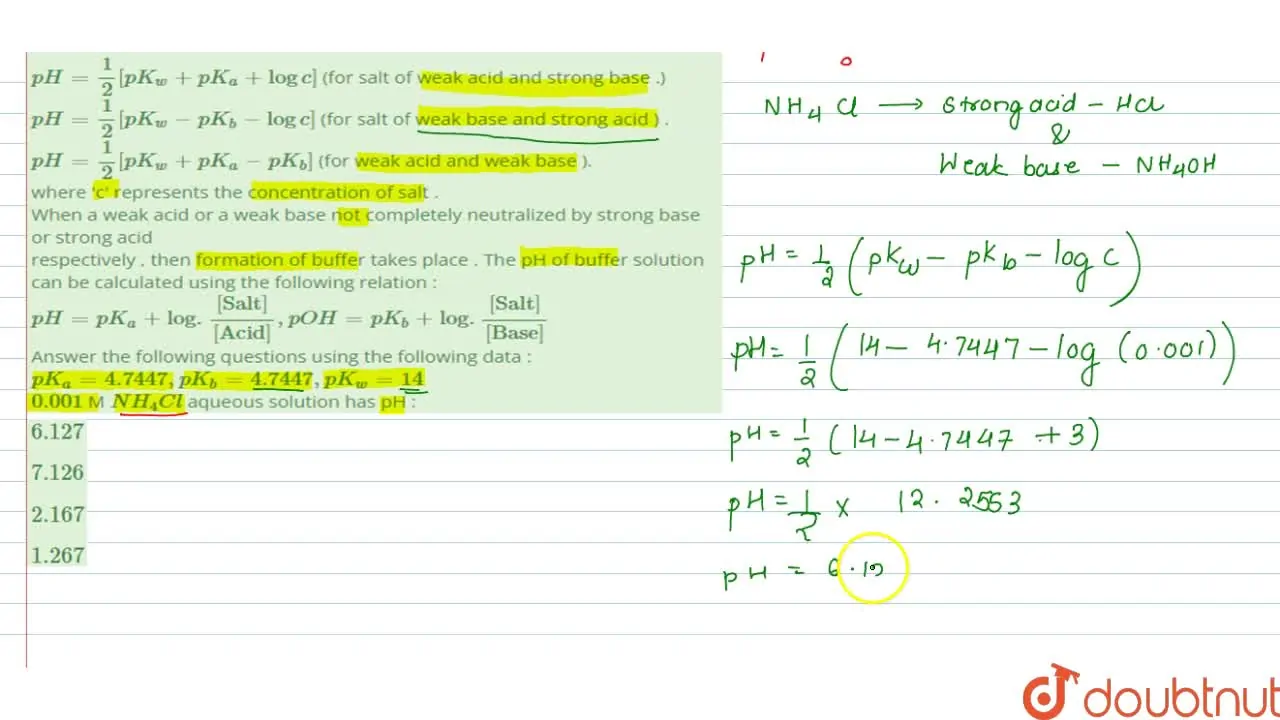 pH = 1/2 [pKw + pKa + log c] (for salt of weak acid and strong base .)
pH = 1/2 [pKw − pKb − log c] (for salt of weak base and strong acid ) .
pH = 1/2 [pKw + pKa − pKb] (for weak acid and weak base ).
where 'c' represents the concentration of salt .
When a weak acid or a weak base not completely neutralized by strong base
or strong acid
respectively , then formation of buffer takes place . The pH of buffer solution
can be calculated using the following relation :
pH = pKa + log. [Salt]/[Acid], pOH = pKb + log. [Salt]/[Base]
Answer the following questions using the following data :
pKa = 4.7447, pKb = 4.7447, pKw = 14
0.001 M NH4Cl aqueous solution has pH :
6.127
7.126
2.167
1.267
NH4Cl ⟶ Strong acid - HCl
&
Weak base - NH4OH
pH = 1/2 (pKw - pKb - log C)
pH = 1/2 (14 - 4.7447 - log (0.001))
pH = 1/2 (14 - 4.7447 + 3)
pH = 1/2 x 12.2553
pH = 6.1
doubtnut